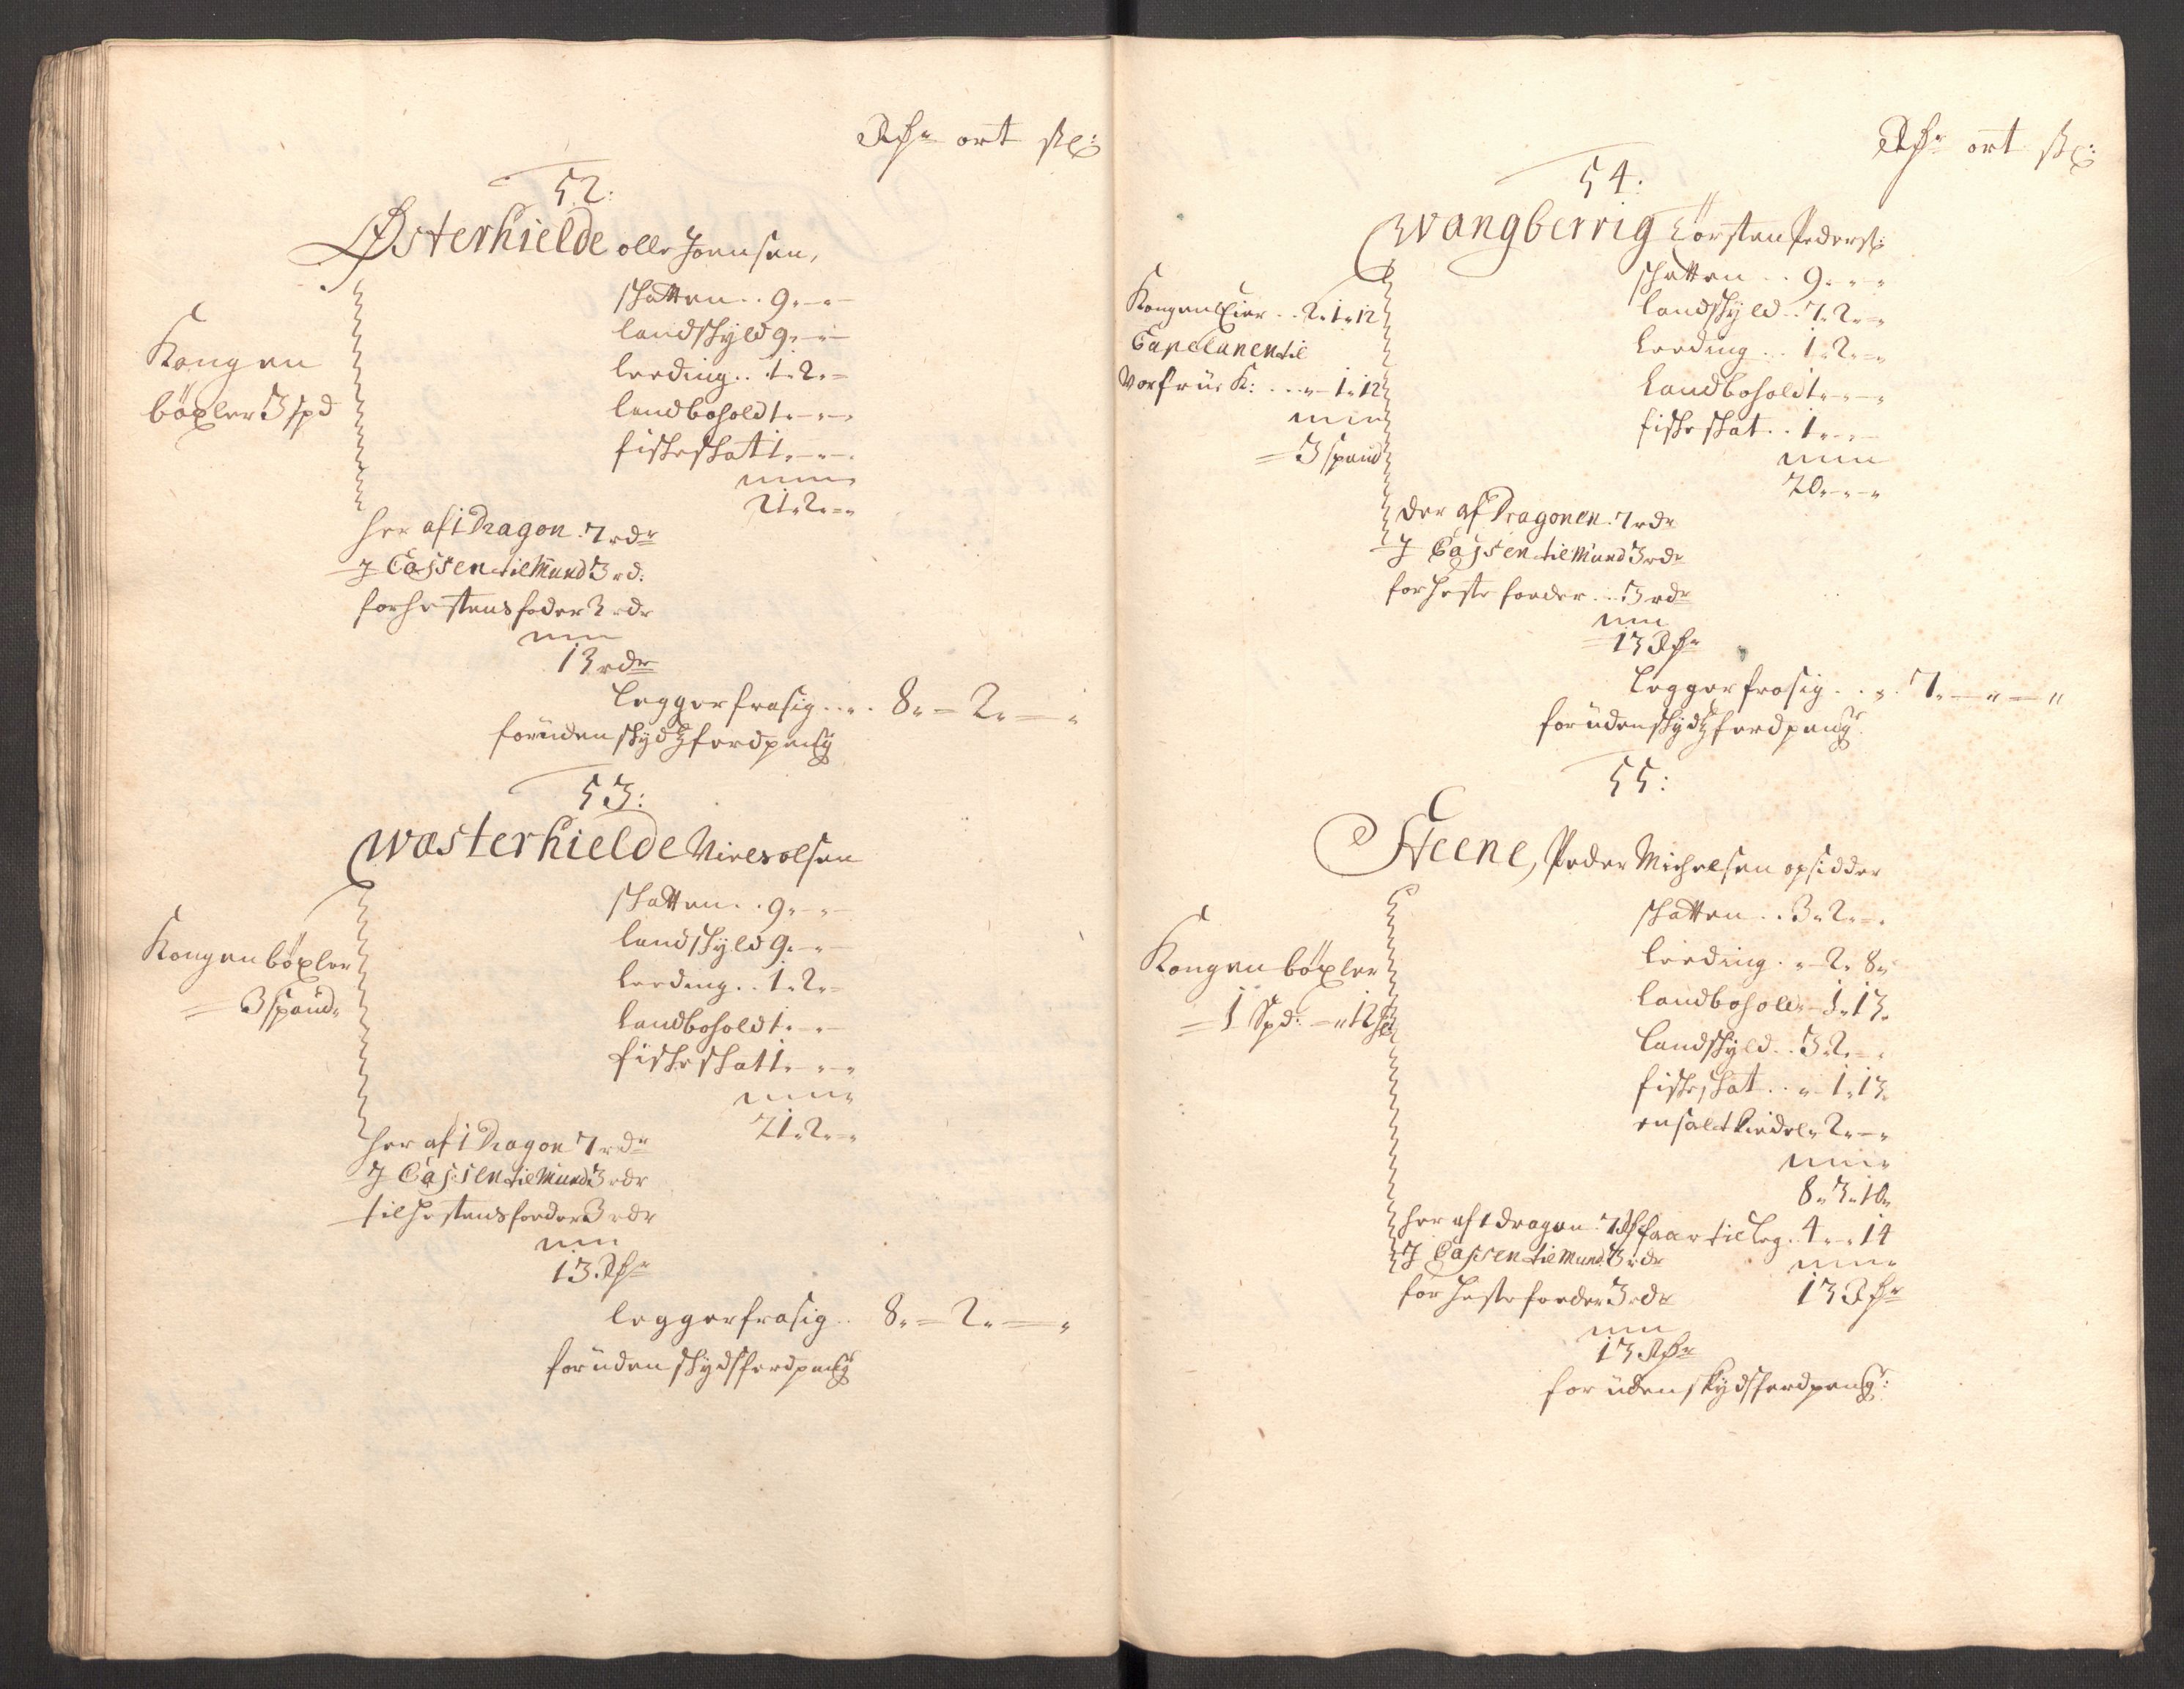 Rdr ort sk:
52:
Østerhielde olle Joensen,
Kongen
böxler 3 spd
skatten .. 9 " - " -
landskyld 9 " - " -
leeding .. 1 " 2 " =
landboholdt " - " - "
fiskeskat 1 " - " - "
21 " 2 " = "
her af 1 Dragon . 7 rdr
J Cassen til Mund 3 rd:
for hestens foder 3 rdr
13 rdr
legger fra sig .. " . 8 " = 2 " — "
foruden skydtzferdpeng
53:
Wæsterhielde Niels olsen
Kongen böxler
= 3 spand "
skatten .. 9 " - " -
landskyld 9 " - " -
leeding .. 1 " 2 " =
landboholdt " - " -
fiskeskat 1 " - " - "
21 " 2 " = "
her af 1 Dragon 7 rdr
J Cassen til Mund 3 rdr
til hestens foeder 3 rdr
13 Rdr
legger fra sig .. 8 " = 2 " — "
foruden skydsferdpeng
Rdr ort sk:
54:
Wangberrig Torsten Peders:
Kongen Eier .. 2 " 1 " 12
Capelanen til
Vorfrue K: ... " 1 " 12
= 3 spand
skatten .. 9 " - " "
landskyld .. 7 " 2 " = "
leeding ... 1 " 2 " = "
Landboholdt " - " - "
fiskeskat .. 1 " - " -
20 " - " - "
der af Dragonen . 7 rdr
J Cassen til Mund 3 rdr
for heste foeder ... 3 rdr
= 13 Rdr
legger fra sig .. " . 7 " — " — "
foruden skydtzferdpeng:
55:
Steene, Peder Michelsen opsidder
Kongen böxler
= 1 Spd: = " 12
skatten .. 3 " 2 " = "
leeding . " - 2 " 8 "
landbohold " - 1 " 13 "
landskyld .. 3 " 2 " = "
fiskeskat .. " - 1 " 13 "
en salt kiedel " 2 " - "
8 " 3 " 10 "
her af 1 dragon . 7 Rdr faar til leg . 4 " - " 14
J Cassen til Mund 3 rdr
13 Rdr
for heste foeder 3 rdr
13 Rdr
foruden skydsferdpeng: